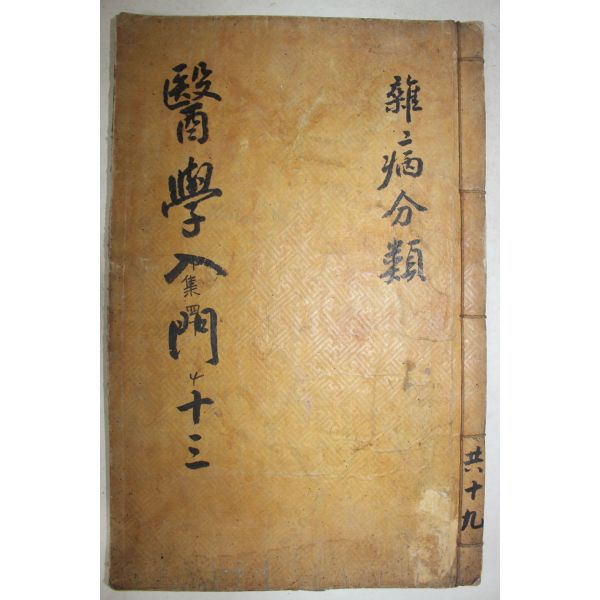 雜病分類
醫學入門 十三
集四
共十九